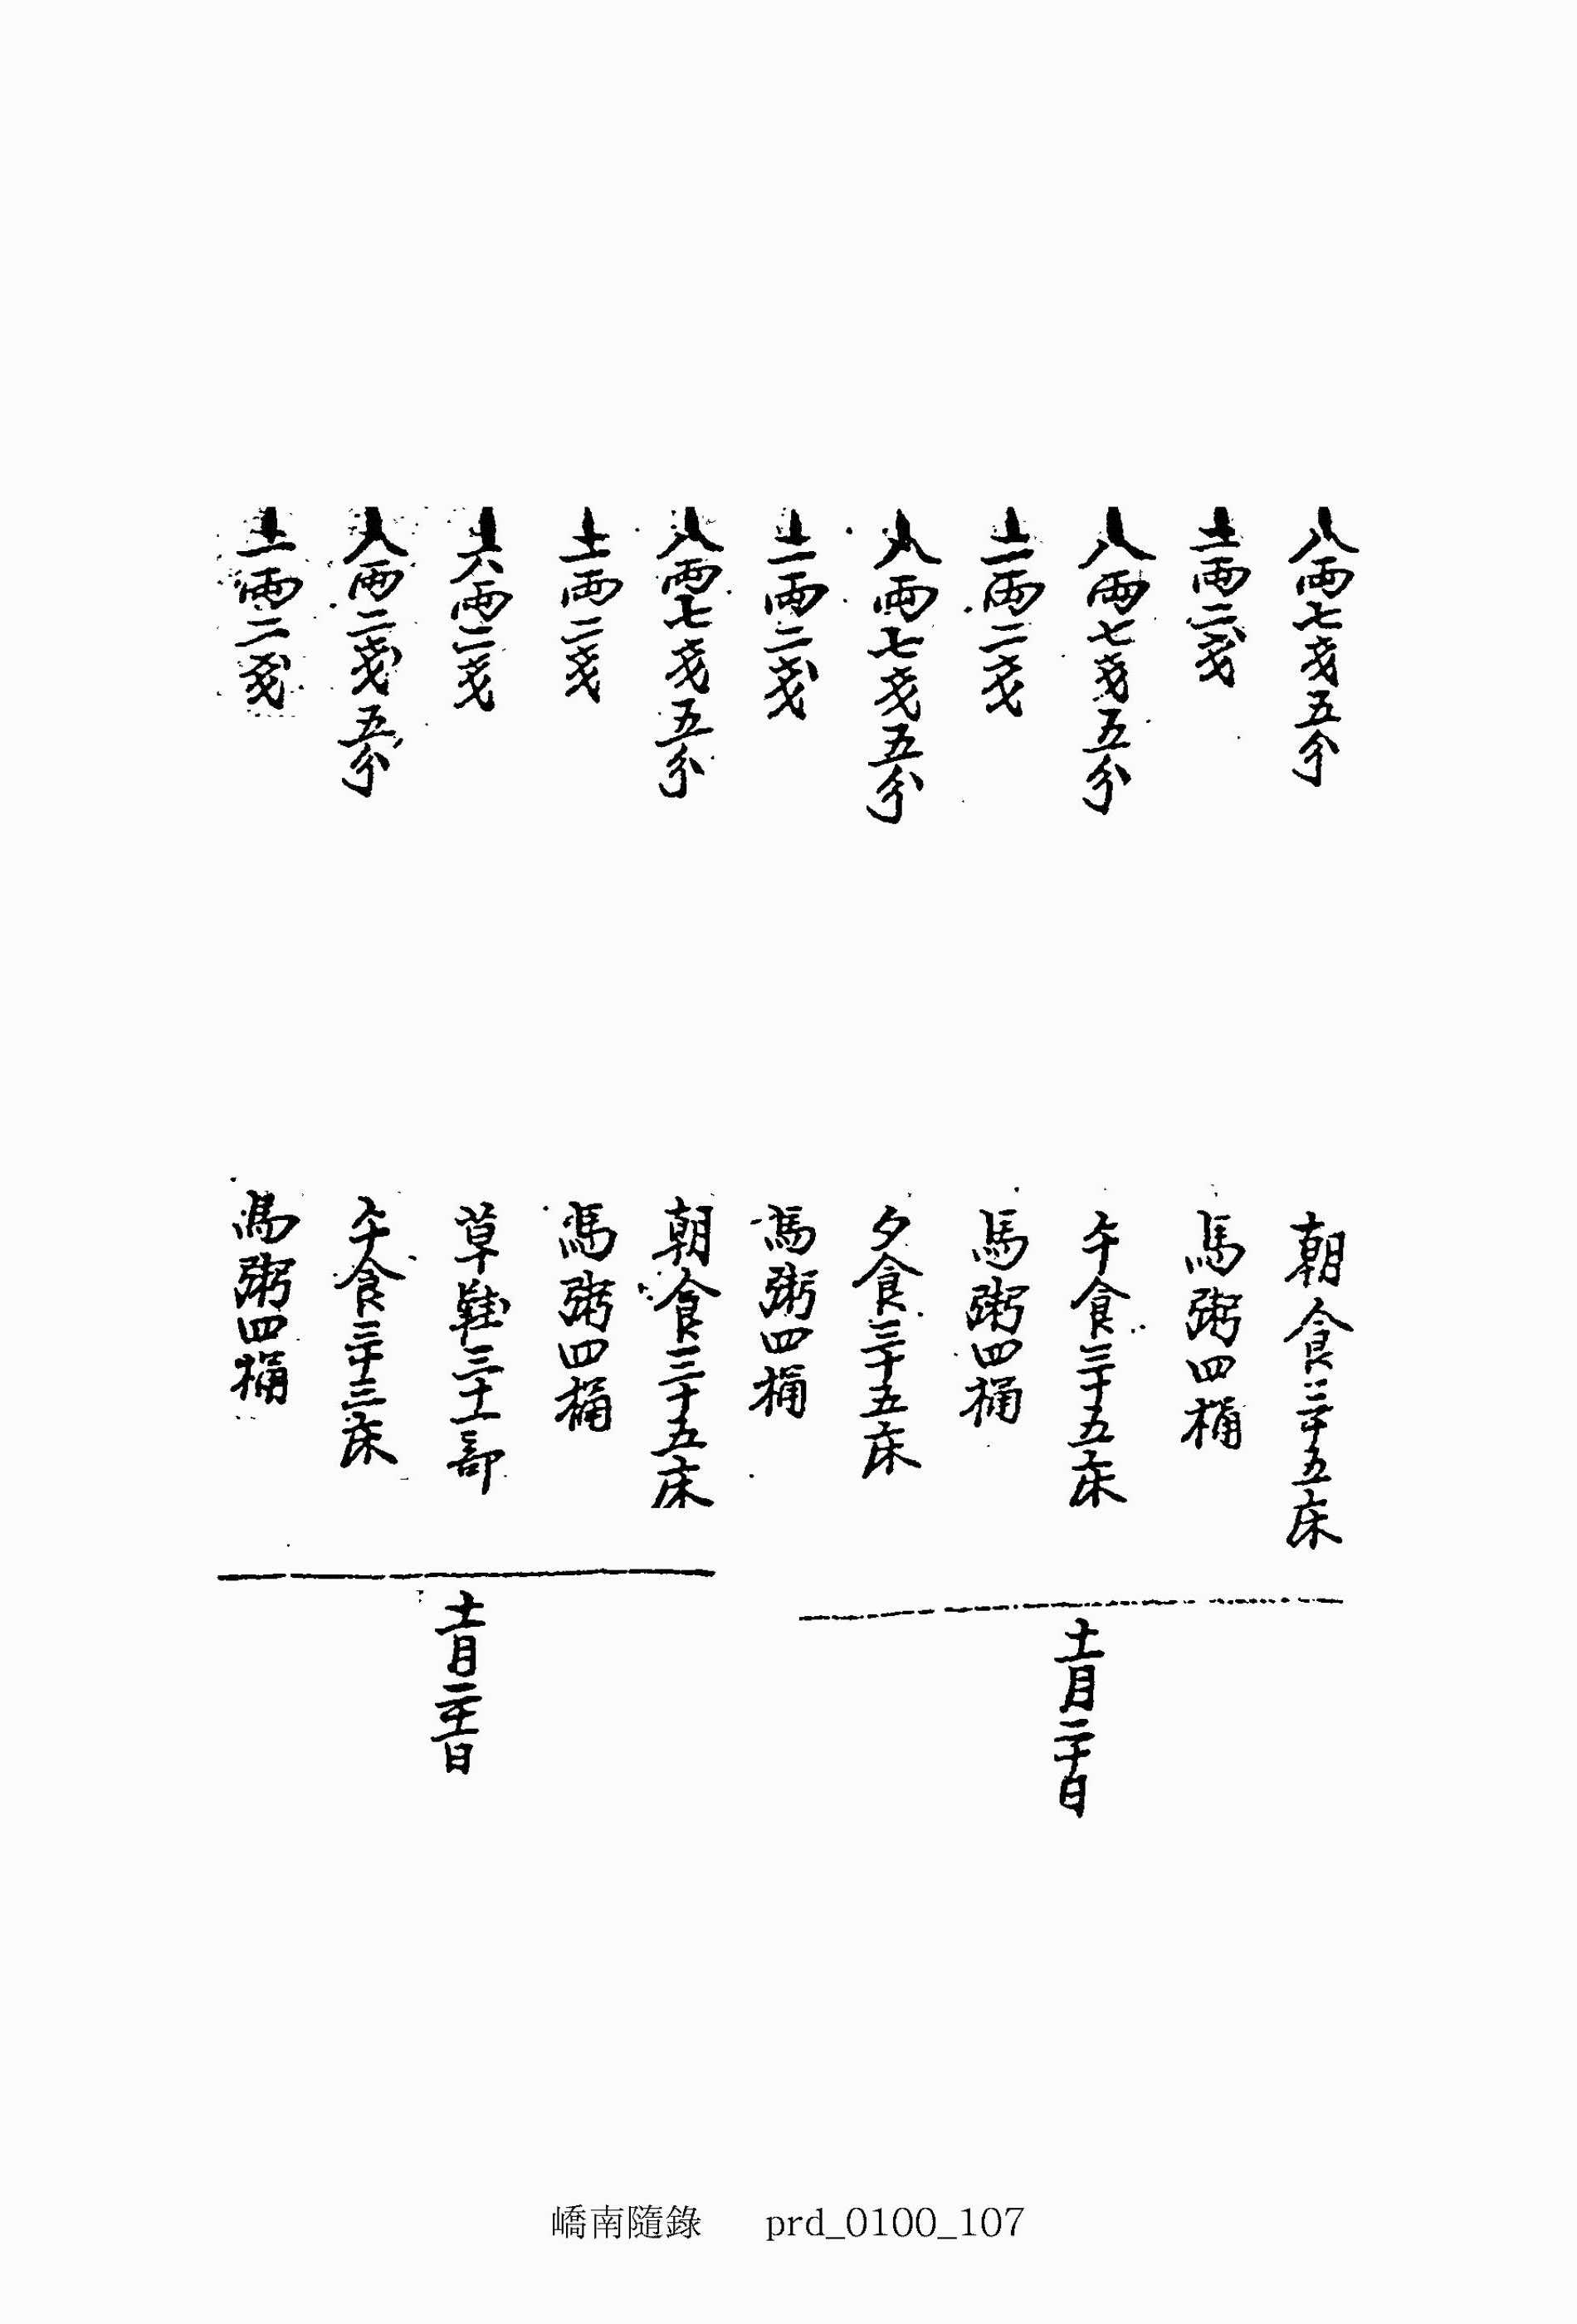 八兩七戔五分 朝食三十五床
十一兩二戔 馬粥四桶
八兩七戔五分 午食三十五床
十一兩二戔 馬粥四桶
八兩七戔五分 夕食三十五床
十一兩二戔 馬粥四桶
十一月二十日
八兩七戔五分 朝食三十五床
十一兩二戔 馬粥四桶
十六兩二戔 草鞋三十一部
八兩二戔五分 午食三十三床
十一兩二戔 馬粥四桶
十一月二十一日
嶠南隨錄 prd_0100_107